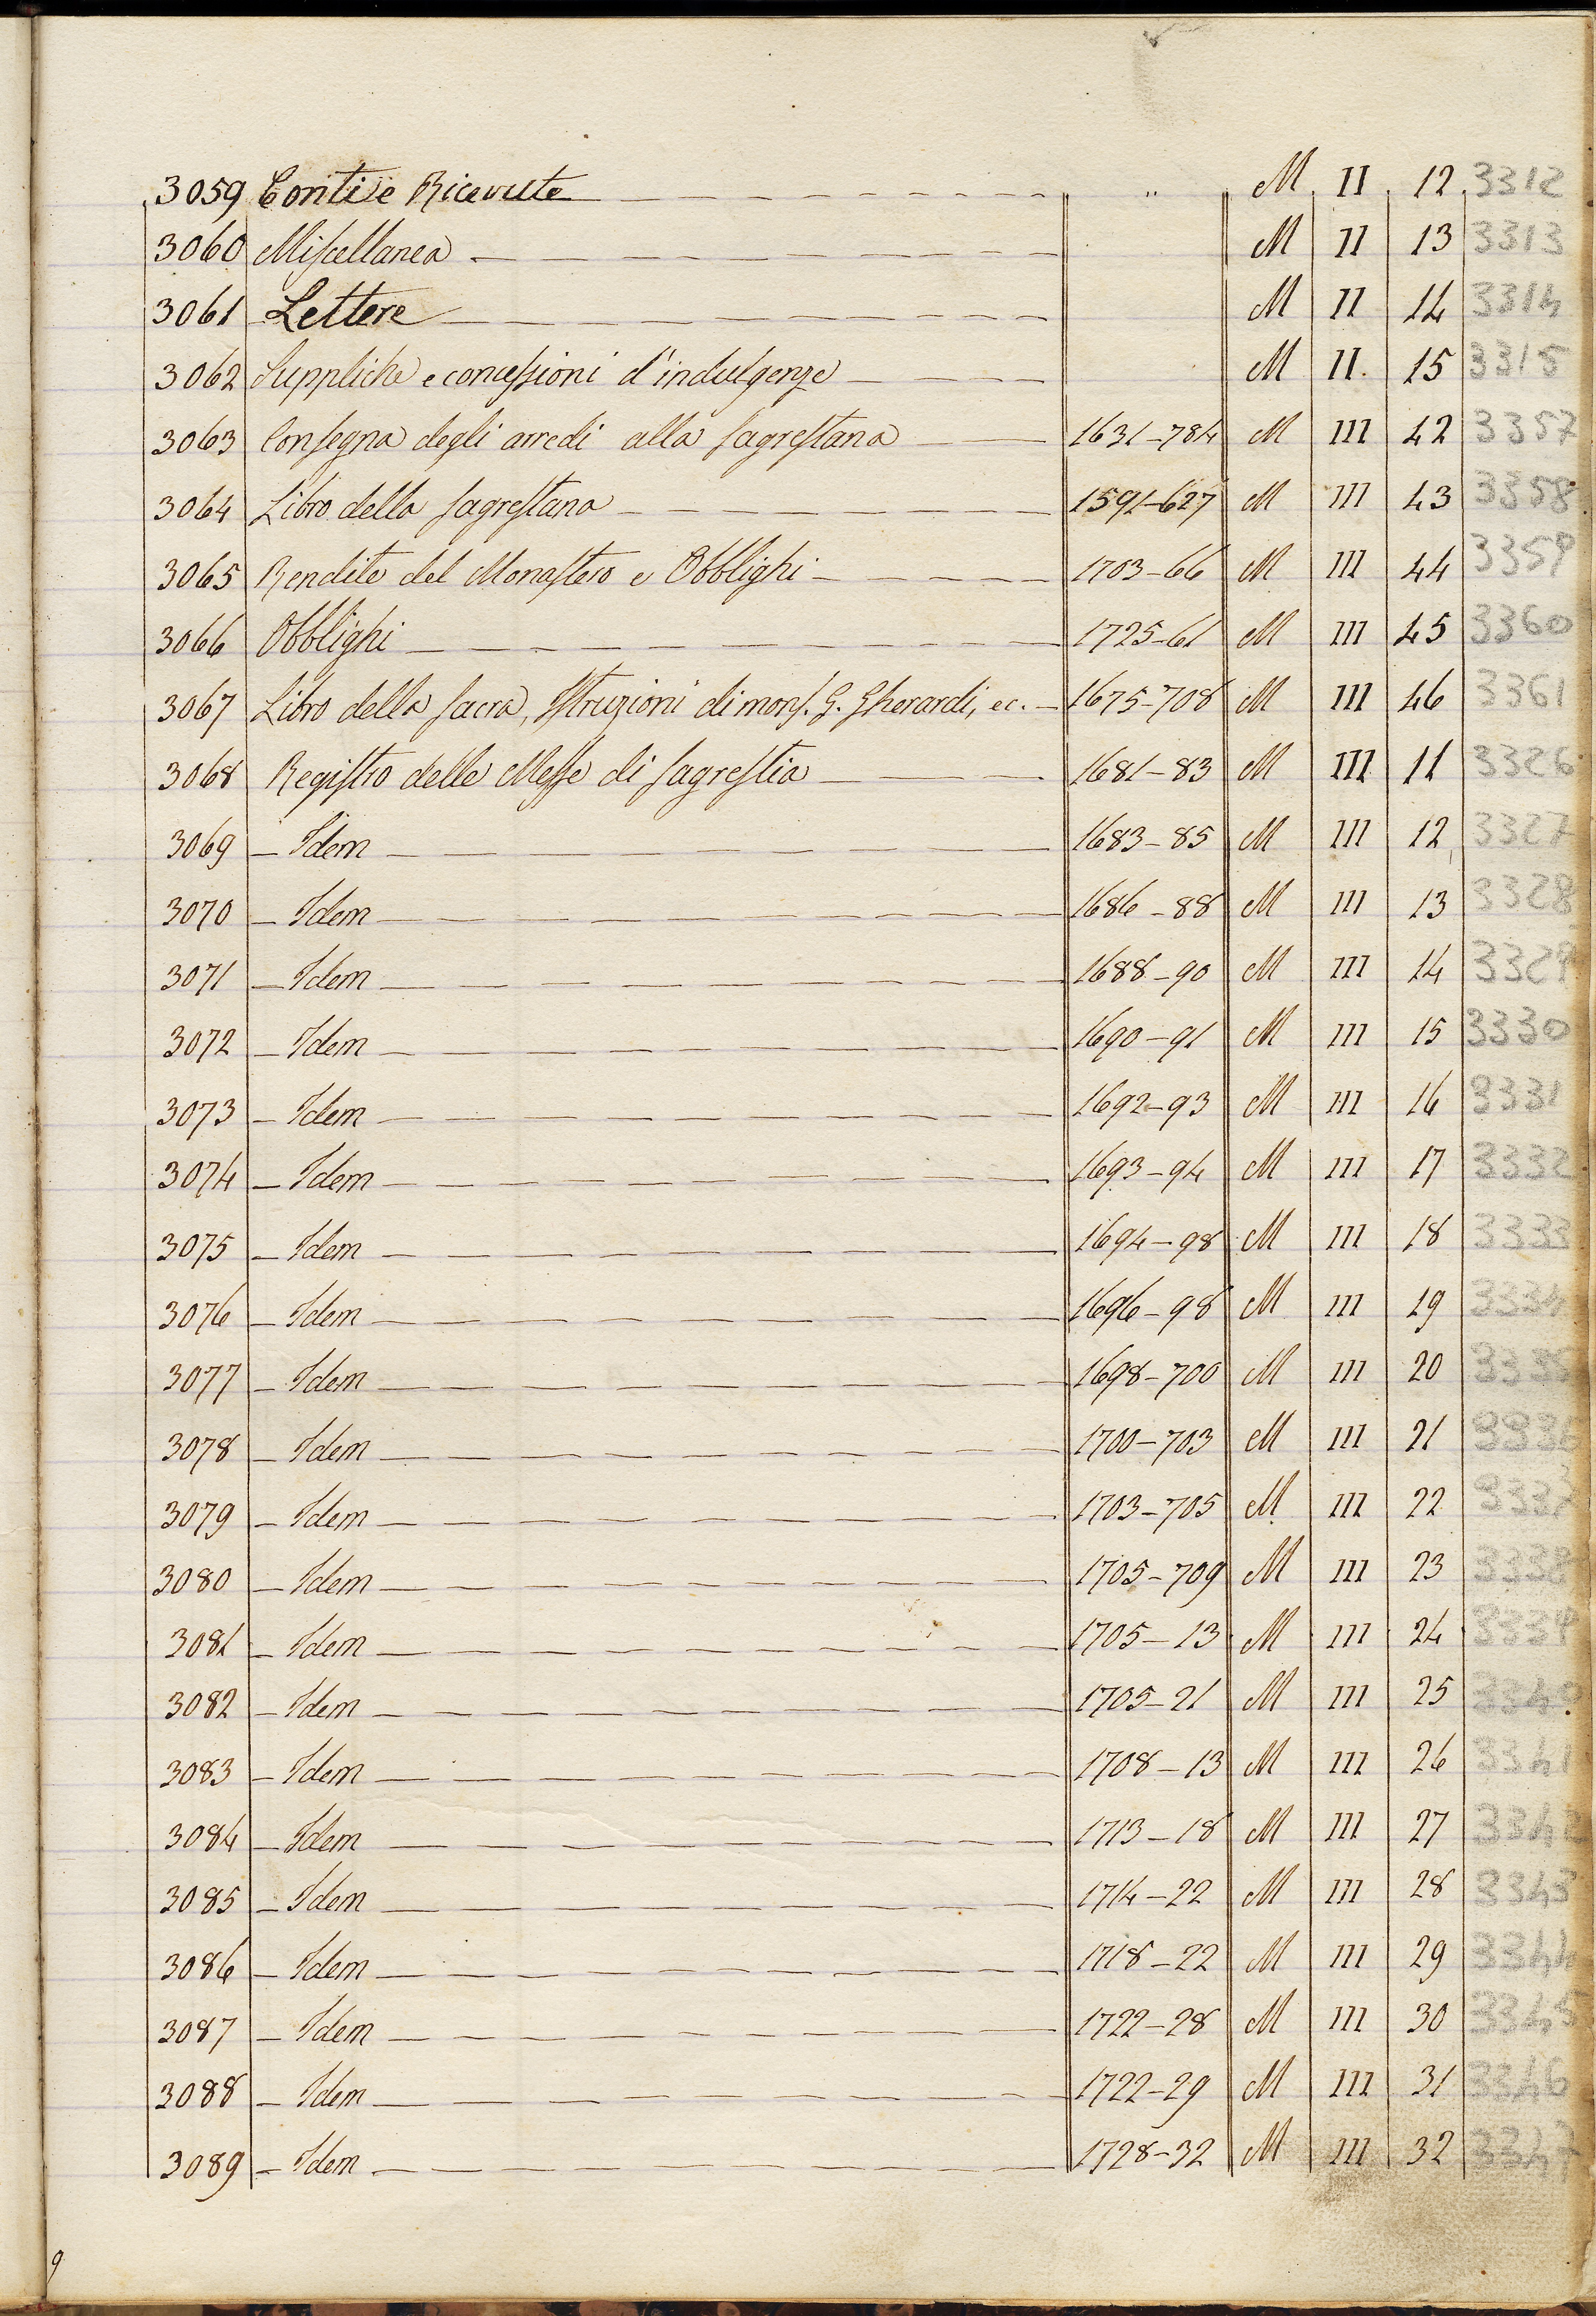 3059 Conti e Ricevute " M II 12 3312
3060 Miscellanea M II 13 3313
3061 Lettere M II 14 3314
3062 Suppliche e concessioni d'indulgenze M II. 15 3315
3063 Consegna degli arredi alla sagrestana 1631-784 M III 42 3357
3064 Libro della sagrestana 1591-627 M III 43 3358
3065 Rendite del Monastero e Obblighi 1703-66 M III 44 3359
3066 Obblighi 1725-61 M III 45 3360
3067 Libro della sacra, Istruzioni di mons. G. Gherardi, ec. 1675-708 M III 46 3361
3068 Registro delle Messe di sagrestia 1681-83 M III 11 3326
3069 - Idem 1683-85 M III 12 3327
3070 - Idem 1686-88 M III 13 3328
3071 - Idem 1688-90 M III 14 3329
3072 - Idem 1690-91 M III 15 3330
3073 - Idem 1692-93 M III 16 3331
3074 - Idem 1693-94 M III 17 3332
3075 - Idem 1694-98 M III 18 3333
3076 - Idem 1696-98 M III 19 3334
3077 - Idem 1698-700 M III 20 3335
3078 - Idem 1700-703 M III 21 3336
3079 - Idem 1703-705 M III 22 3337
3080 - Idem 1705-709 M III 23 3338
3081 - Idem 1705-13 M III 24 3339
3082 - Idem 1705-21 M III 25 3340
3083 - Idem 1708-13 M III 26 3341
3084 - Idem 1713-18 M III 27 3342
3085 - Idem 1714-22 M III 28 3343
3086 - Idem 1718-22 M III 29 3344
3087 - Idem 1722-28 M III 30 3345
3088 - Idem 1722-29 M III 31 3346
3089 - Idem 1728-32 M III 32 3347
9